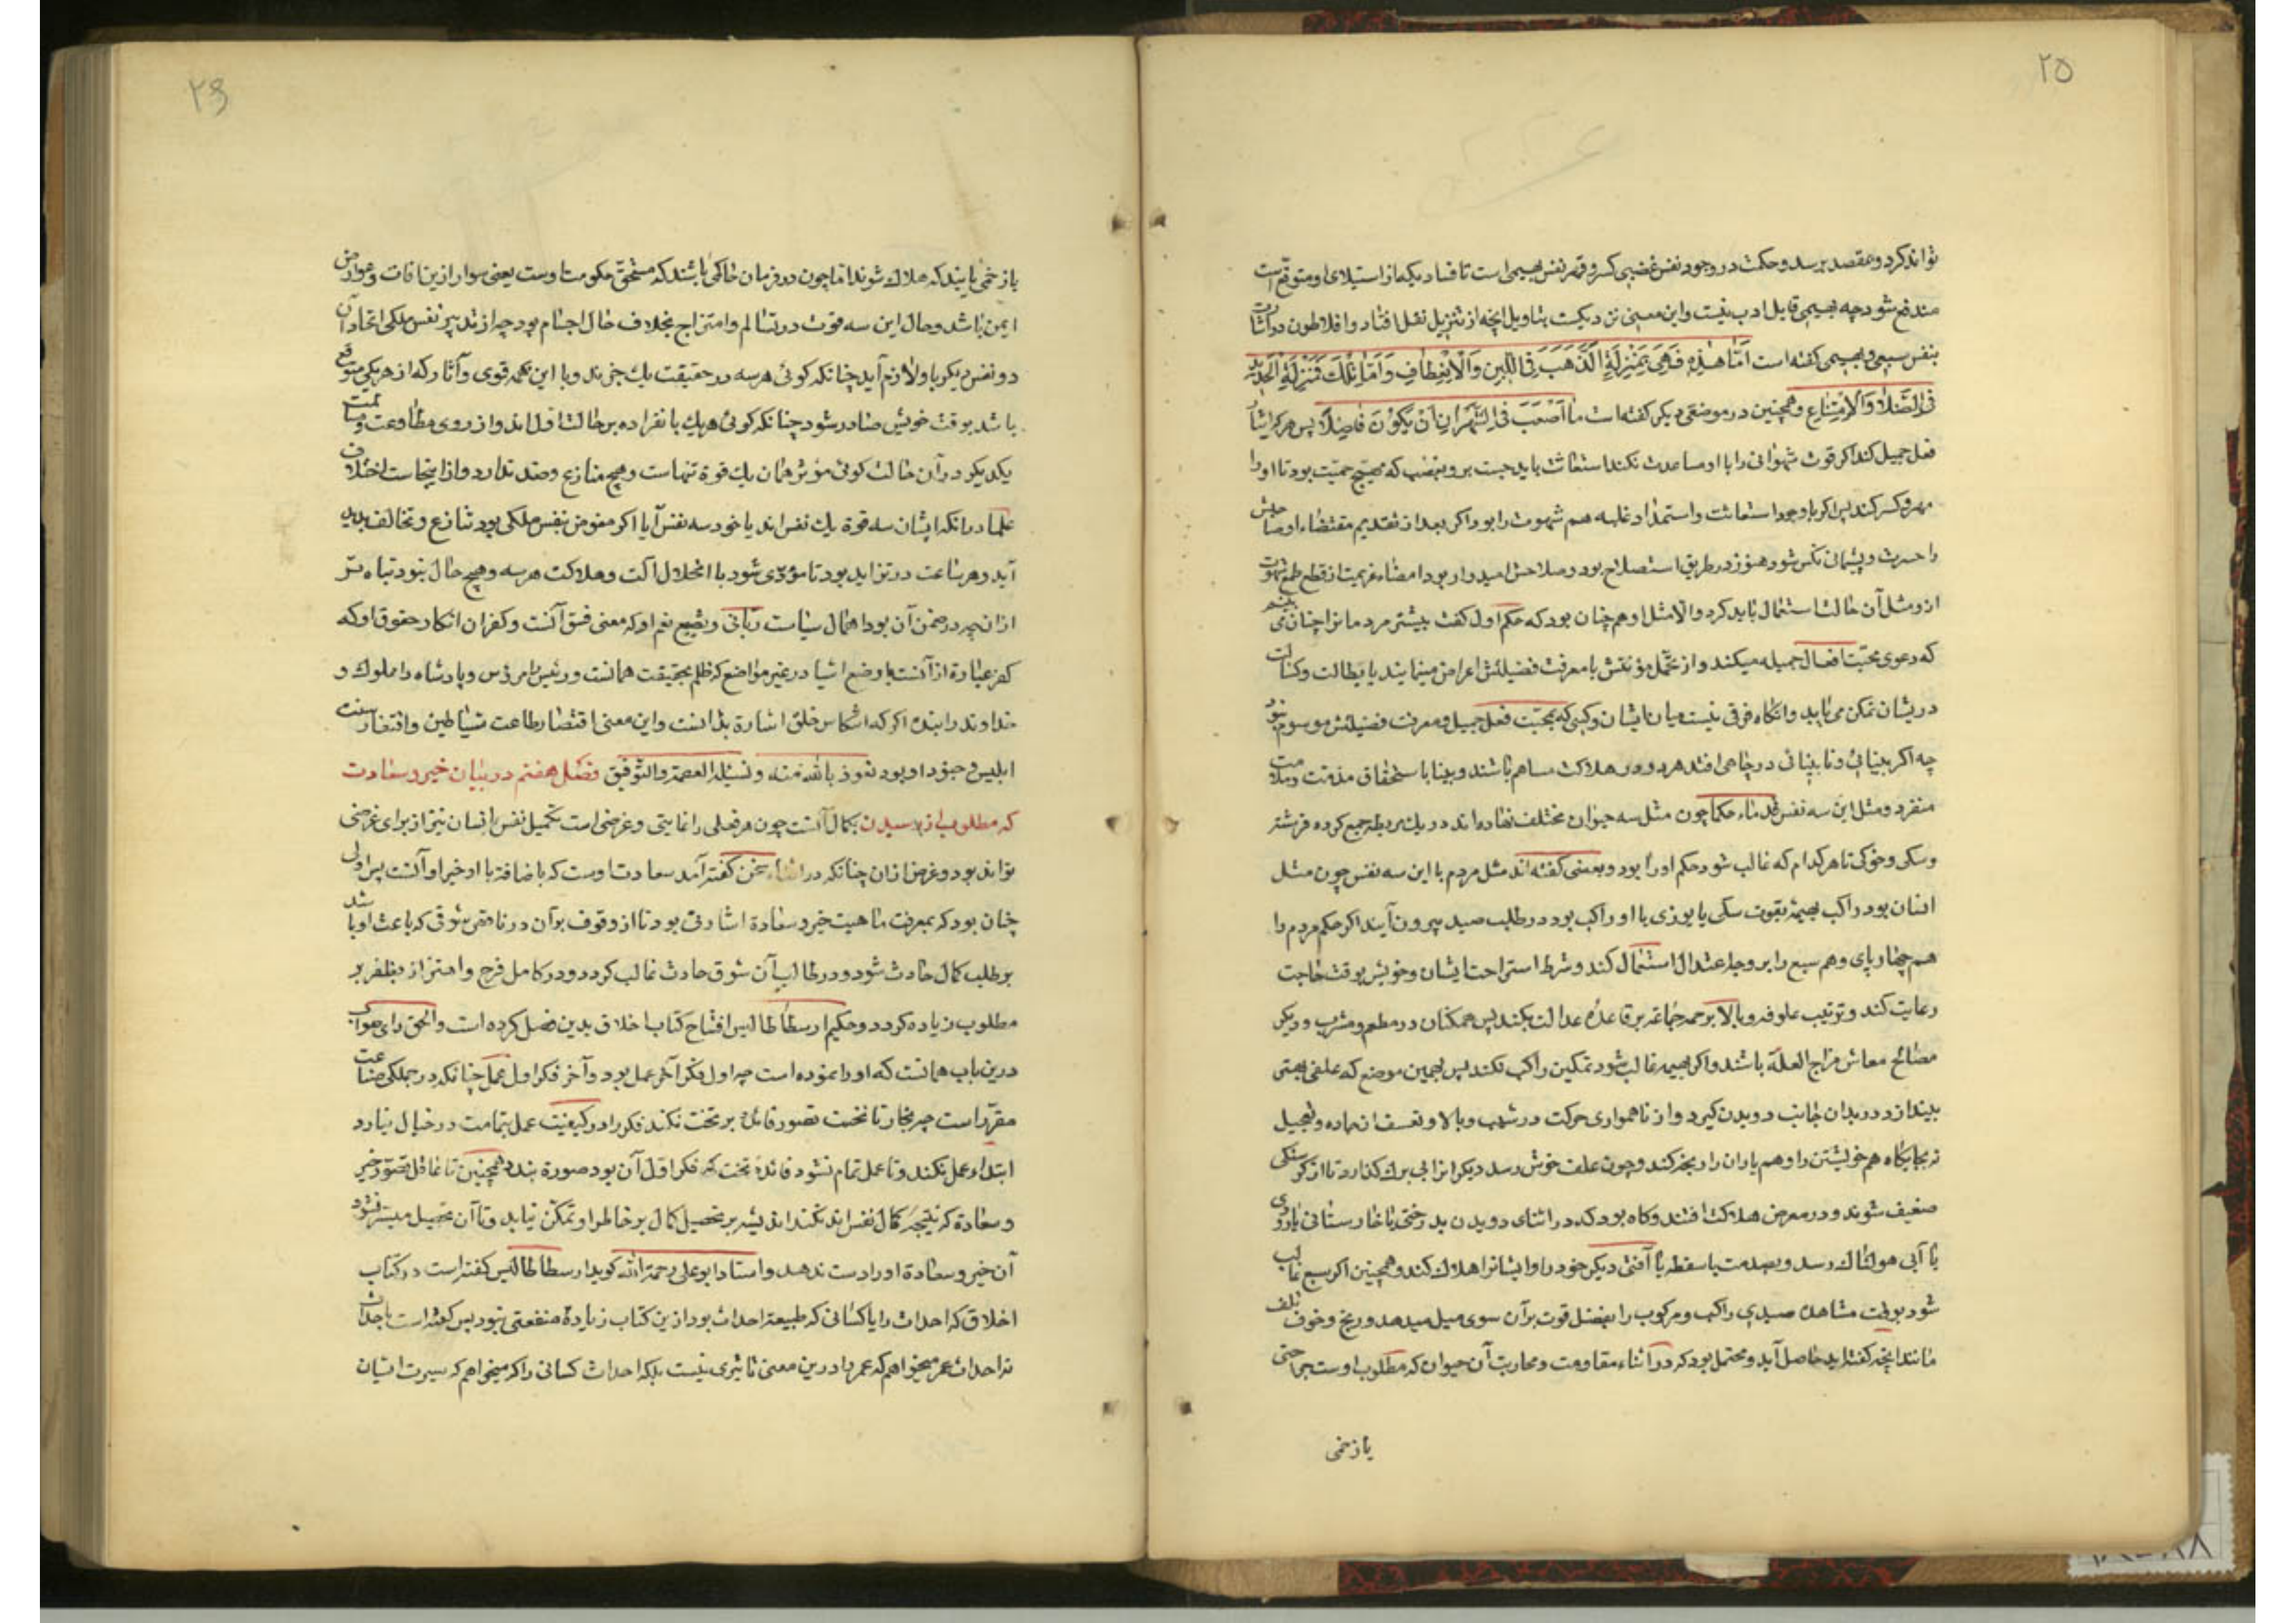 ۲۵
تواند کرد و بمقصد برسد و حکمت در وجود نفس غضبی کسر و قهر نفس بهیمی است تا فساد یکه از استیلای او متوقع است
مندفع شود چه بهیمی قابل ادب نیست و این معنی نزدیکست بتاویل آنچه از تنزیل نقل افتاد و افلاطون در اشارت
بنفس سبعی و بهیمی گفته است اَمّا هٰذِهِ فَهِیَ بِمَنْزِلَةِ الذَّهَبِ فِی اللّینِ وَالْاِنْعِطافِ وَاَمّا تِلْكَ فَمَنْزِلَةِ الْحَدیدِ
فِی الصَّلابَةِ وَالْاِمْتِناعِ و همچنین در موضعی دیگر گفته است ما اَصْعَبَ فِی الشَّهْوانِ اَنْ یَکُوْنَ فاضِلاً پس هر کرا ایثار
فعل جمیل کند اگر قوت شهوانی را با او مساعدت نکند استعانت باید جست برو بغضب که مهیج حمیت بود تا او را
قهر و کسر کند پس اگر با وجود استعانت و استمداد غلبه هم شهوت را بود اگر بعد از تقدیم مقتضاء او صاحبش
را حسرت و پشیمانی نکس شود هنوز در طریق استصلاح بود و صلاحش امیدوار بود امضاء عزیمت از قطع طمع شهوت
از و مثل آن حالت استعمال باید کرد والا مثل او هم چنان بود که حکم اول گفت بیشتر مردمانرا چنان می بینم
که دعوی محبت افعال جمیله میکند و از تحمل مؤنتش با معرفت فضیلتش اعراض مینمایند با بطالت و کسالت
دریشان تمکن می یابد و آنگاه فرقی نیست میان ایشان و کسی که بمحبت فعل جمیل و معرفت فضیلتش موسوم نبود
چه اگر بینائی و نابینائی در چاهی افتد هر دو در هلاکت مساهم باشند و بینا باستحقاق مذمت و ملامت
منفرد و مثل این سه نفس قدماء حکما چون مثل سه حیوان مختلف نهاده اند در یك مربطه جمع کرده فرشته
و سگی و خوکی تا هر کدام که غالب شود حکم او را بود و بعضی گفته اند مثل مردم با این سه نفس چون مثل
انسان بود راکب بهیمهٔ بقوت سگی یا یوزی با او راکب بود در طلب صید بیرون آیند اگر حکم مردم را
هم چهارپای و هم سبع را بر وجه اعتدال استعمال کند و شرط استراحت ایشان و خویش بوقت حاجت
رعایت کند و ترتیب علوفه و بالا بر جمله جماعة بر قاعدهٔ عدالت بکند پس همگنان در مطعم و مشرب و دیگر
مصالح معاش مزاج العلة باشند و اگر بهیمه غالب شود تمکین راکب نکند پس بهمین موضع که علفی بهتر
بیند از دور بدان جانب دویدن گیرد و از ناهمواری حرکت در شیب و بالا و تعسف از جاده و تعجیل
نه بجایگاه هم خویشتن را و هم یاران را رنجه کند و چون علف خوش رسد دیگرانرا بی برك گذارد تا از گرسنگی
ضعیف شوند و در معرض هلاکت افتند و گاه بود که در اثنای دویدن بدرختی یا خارستانی یا رودی
یا آبی هولناك رسد و بصدمت یا سقطه یا آفتی دیگر خود را و ایشانرا هلاك کند و همچنین اگر سبع غالب
شود بوقت مشاهدهٔ صیدی راکب و مرکوب را بفضل قوت بر آن سوی میل میدهد و رنج و خوف تلف
مانند آنچه گفته اید حاصل آید و محتمل بود که در اثناء مقاومت و محاربت آن حیوان که مطلوب اوست جراحتی
یا زخمی
۲۶
یا زخمی یابند که هلاك شوند اما چون در فرمان حاکمی باشند که مستحق حکومت اوست یعنی سوار ازین آفات و عوارض
ایمن باشد و حال این سه قوت در تسالم و امتزاج بخلاف حال اجسام بود چه از تدبیر نفس ملکی اتحاد آن
دو نفس دیگر با او لازم آید چنانکه گوئی هر سه در حقیقت یك چیزند و با این همه قوی و آثار که از هر یکی متوقع
باشد بوقت خویش صادر شود چنانکه گوئی هر یك بانفراده بر حالت اول اند و از روی مطاوعت و مسالمت
یکدیگر در آن حالت گوئی مؤثر همان یك قوة تنهاست و هیچ منازع و ضد ندارد و از اینجاست اختلاف
علما در آنکه ایشان سه قوة یك نفس اند یا خود سه نفس آیا اگر مفوض نفس ملکی بود تنازع و تخالف پدید
آید و هر ساعت در تزاید بود تا مؤدی شود با انحلال آلت و هلاکت هر سه و هیچ حال بنود تباه تر
از آن چه در ضمن آن بود اهمال سیاست ربانی و تضییع نعم او که معنی فسق آنست و کفران انکار حقوق او که
کفر عبارة از آنست یا وضع اشیا در غیر مواضع که ظلم بحقیقت همانست و رئیس را مرؤس و پادشاه را مملوك و
خداوند را بنده اگر که انعکاس خلق اشارة بذانست و این معنی اقتضاء طاعت شیاطین و اقتفاء سنت
ابلیس و جنود او بود نعوذ بالله منه و نسئله العصمة والتوفیق فصل هفتم در بیان خیر و سعادت
که مطلوب از رسیدن بکمال آنست چون هر فعلی را غایتی و غرضی است تکمیل نفس انسان نیز از برای غرضی
تواند بود و غرض از آن چنانکه در اثناء سخن گفته آمد سعادت اوست که باضافة با او خیر او آنست پس اولی
چنان بود که بمعرفت ماهیت خیر و سعادة اشارتی بود تا از وقوف بر آن در ناقص شوقی که باعث او باشد
بر طلب کمال حادث شود و در طالب آن شوق حادث غالب گردد و در کامل فرح و اهتزاز بظفر بر
مطلوب زیاده گردد و حکیم ارسطاطالیس افتتاح کتاب اخلاق بدین فصل کرده است والحق رای صواب
درین باب همانست که او را نموده است چه اول فکر آخر عمل بود و آخر فکر اول عمل چنانکه در جملگی صناعت
مقرر است چه نجار تا نخست تصور فائدهٔ بر تخت نکند فکر را در کیفیت عمل بتمامت در خیال نیارد
ابتداء عمل نکند و تا عمل تمام نشود فائدهٔ تخت که فکر اول آن بود صورة نبندد همچنین تا عاقل تصور خیر
و سعادة که نتیجهٔ کمال نفس اند نکند اندیشه بر تحصیل کمال بر خاطر او تمکن نیابد و تا آن تحصیل میسر نشود
آن خیر و سعادة او را دست ندهد و استاد ابو علی رحمة الله گوید ارسطاطالیس گفته است در کتاب
اخلاق که احداث را یا کسانی که طبیعة احداث بود ازین کتاب زیادهٔ منفعتی نبود پس گفته است باحداث
نه احداث عمر میخواهم که عمر را درین معنی تاثیری نیست بلکه احداث کسانی را که میخواهم که سیرت ایشان